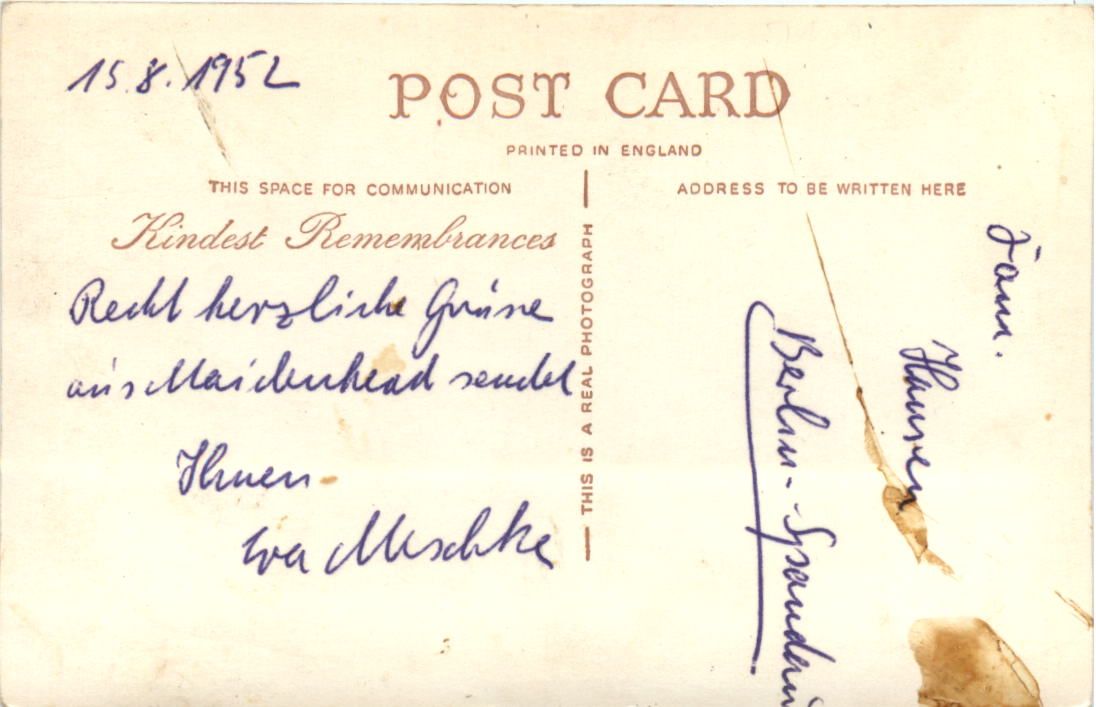 15.8.1952
POST CARD
PRINTED IN ENGLAND
THIS SPACE FOR COMMUNICATION
ADDRESS TO BE WRITTEN HERE
Kindest Remembrances
Recht herzliche Grüsse
aus Maidenhead sendet
Ihnen
Eva Meschke
THIS IS A REAL PHOTOGRAPH
Fam.
Hansen
Berlin-Spandau